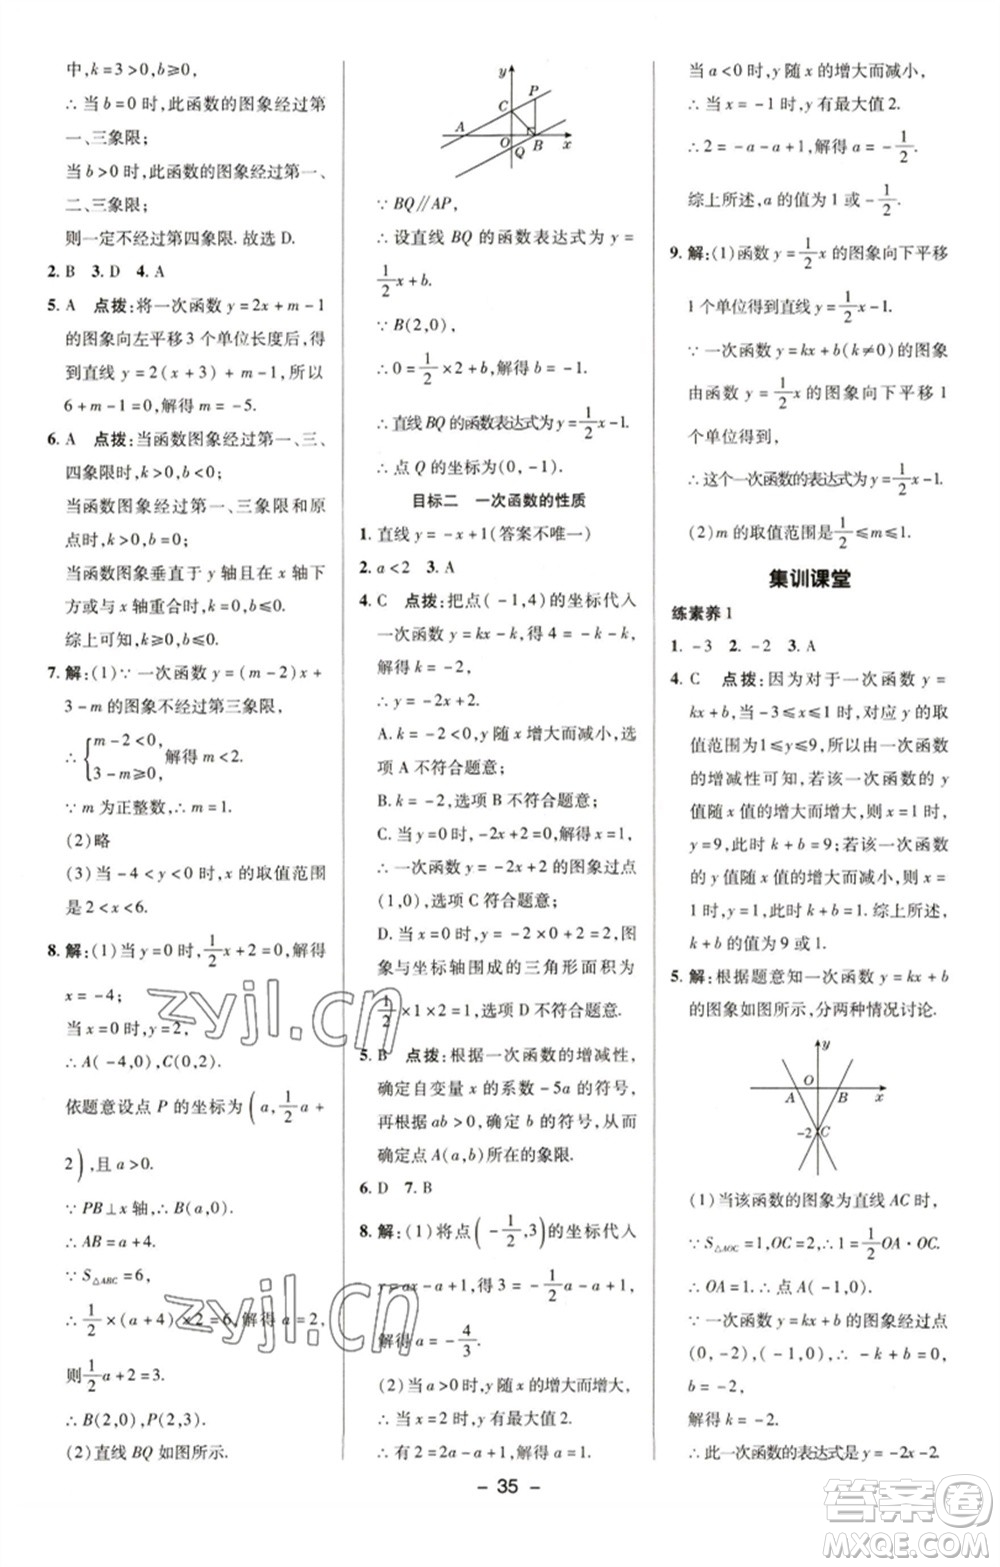 中,k=3>0,b≥0,
∴当b=0时,此函数的图象经过第
一、三象限;
当b>0时,此函数的图象经过第一、
二、三象限;
则一定不经过第四象限.故选D.
2. B 3. D 4. A
5. A 点拨:将一次函数y=2x+m-1
的图象向左平移3个单位长度后,得
到直线y=2(x+3)+m-1,所以
6+m-1=0.解得m=-5.
6. A 点拨:当函数图象经过第一、三、
四象限时,k>0,b<0;
当函数图象经过第一、三象限和原
点时,k>0,b=0;
当函数图象垂直于y轴且在x轴下
方或与x轴重合时,k=0,b≤0.
综上可知,k≥0,b≤0.
7. 解:(1)∵一次函数y=(m-2)x+
3-m的图象不经过第三象限,
∴{m-2<0, 3-m≥0,解得m<2.
∵m为正整数,∴m=1.
(2)略
(3)当-4<y<0时,x的取值范围
是2<x<6.
8. 解:(1)当y=0时,1/2x+2=0,解得
x=-4;
当x=0时,y=2,
∴A(-4,0),C(0,2).
依题意设点P的坐标为(a,1/2a+
2),且a>0.
∵PB⊥x轴,∴B(a,0).
∴AB=a+4.
∵S△ABC=6,
∴1/2×(a+4)×2=6,解得a=2,
则1/2a+2=3.
∴B(2,0),P(2,3).
(2)直线BQ如图所示.
y
P
C
A
O
B
x
Q
∵BQ∥AP,
∴设直线BQ的函数表达式为y=
1/2x+b.
∵B(2,0),
∴0=1/2×2+b,解得b=-1.
∴直线BQ的函数表达式为y=1/2x-1.
∴点Q的坐标为(0,-1).
目标二 一次函数的性质
1. 直线y=-x+1(答案不唯一)
2. a<2 3. A
4. C 点拨:把点(-1,4)的坐标代入
一次函数y=kx-k,得4=-k-k,
解得k=-2,
∴y=-2x+2.
A. k=-2<0,y随x的增大而减小,选
项A不符合题意;
B. k=-2,选项B不符合题意;
C. 当y=0时,-2x+2=0,解得x=1,
∴一次函数y=-2x+2的图象过点
(1,0),选项C符合题意;
D. 当x=0时,y=-2×0+2=2,图
象与坐标轴围成的三角形面积为
1/2×1×2=1,选项D不符合题意.
5. B 点拨:根据一次函数的增减性,
确定自变量x的系数-5a的符号,
再根据ab>0,确定b的符号,从而
确定点A(a,b)所在的象限.
6. D 7. B
8. 解:(1)将点(-1/2,3)的坐标代入
y=ax-a+1,得3=-1/2a-a+1,
解得a=-4/3.
(2)当a>0时,y随x的增大而增大,
∴当x=2时,y有最大值2.
∴有2=2a-a+1,解得a=1.
当a<0时,y随x的增大而减小,
∴当x=-1时,y有最大值2.
∴2=-a-a+1,解得a=-1/2.
综上所述,a的值为1或-1/2.
9. 解:(1)函数y=1/2x的图象向下平移
1个单位得到直线y=1/2x-1.
∵一次函数y=kx+b(k≠0)的图象
由函数y=1/2x的图象向下平移1
个单位得到,
∴这个一次函数的表达式为y=1/2x-1.
(2)m的取值范围是1/2≤m≤1.
集训课堂
练素养1
1. -3 2. -2 3. A
4. C 点拨:因为对于一次函数y=
kx+b,当-3≤x≤1时,对应y的取
值范围为1≤y≤9,所以由一次函数
的增减性可知,若该一次函数的y
值随x值的增大而增大,则x=1时,
y=9,k+b=9;若该一次函数的y
值随x值的增大而减小,则x=
1时,y=1,k+b=1.综上所述,
k+b的值为9或1.
5. 解:根据题意知一次函数y=kx+b
的图象如图所示,分两种情况讨论.
y
O
A
B
x
-2
C
(1)当该函数的图象为直线AC时,
∵S△AOC=1,OC=2,∴1=1/2OA·OC.
∴OA=1.∴点A(-1,0).
∵一次函数y=kx+b的图象经过点
(0,-2),(-1,0),∴-k+b=0,
解得k=-2.
∴此一次函数的表达式是y=-2x-2.
- 35 -
zyjl.cn
zyjl.cn
答案圈
MXQE.COM